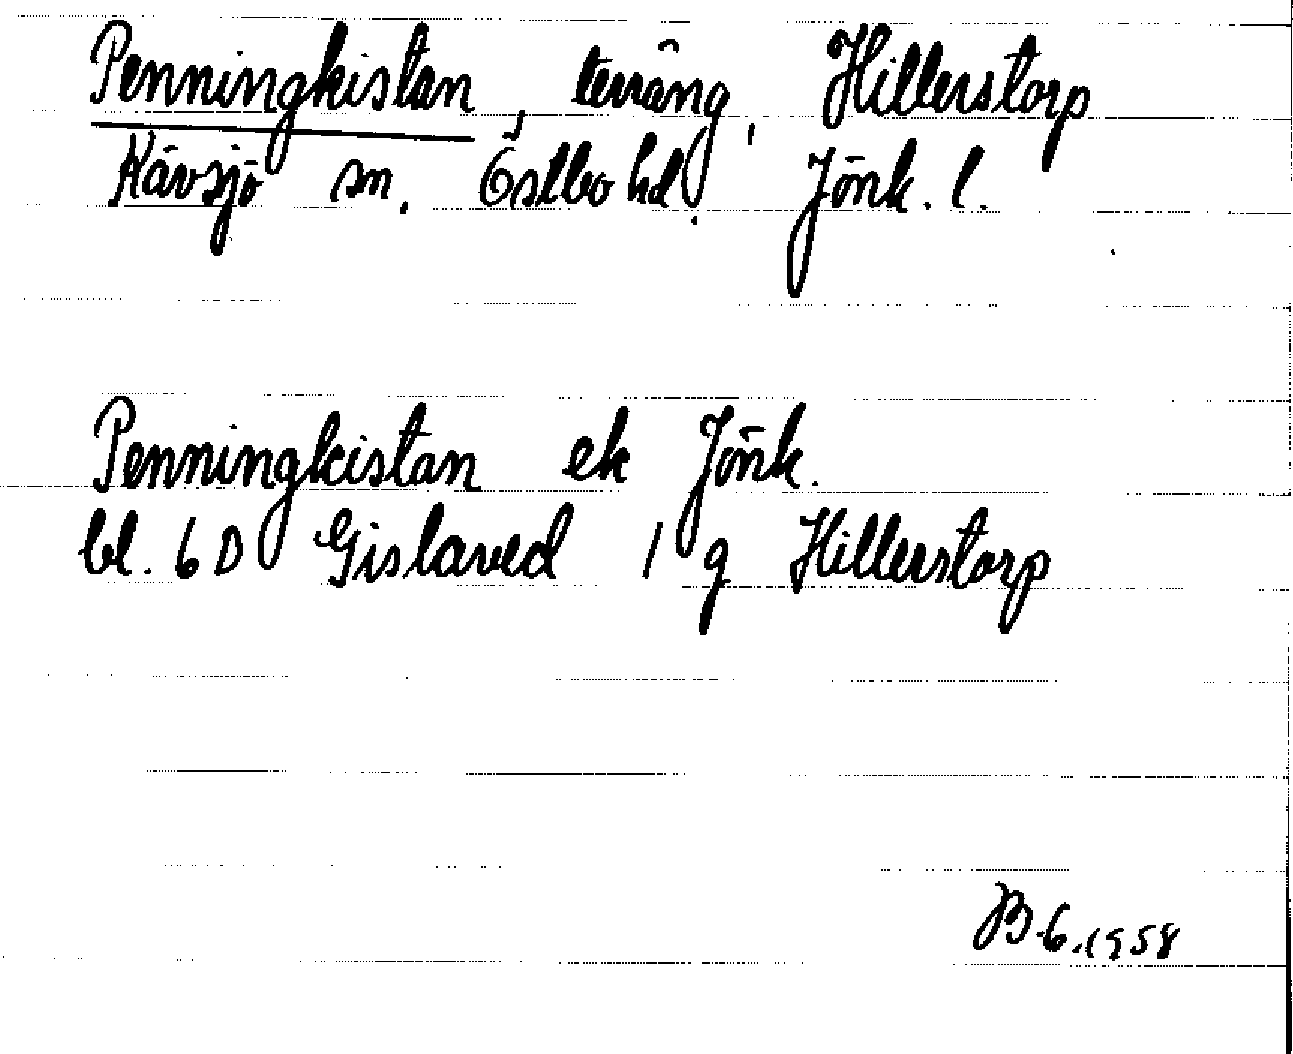 Penningkistan, terräng, Hillerstorp
Kävsjö sn. Östbo hd. Jönk. l.
Penningkistan ek Jönk.
bl. 6 D Gislaved 1 g Hillerstorp
B 6.1958